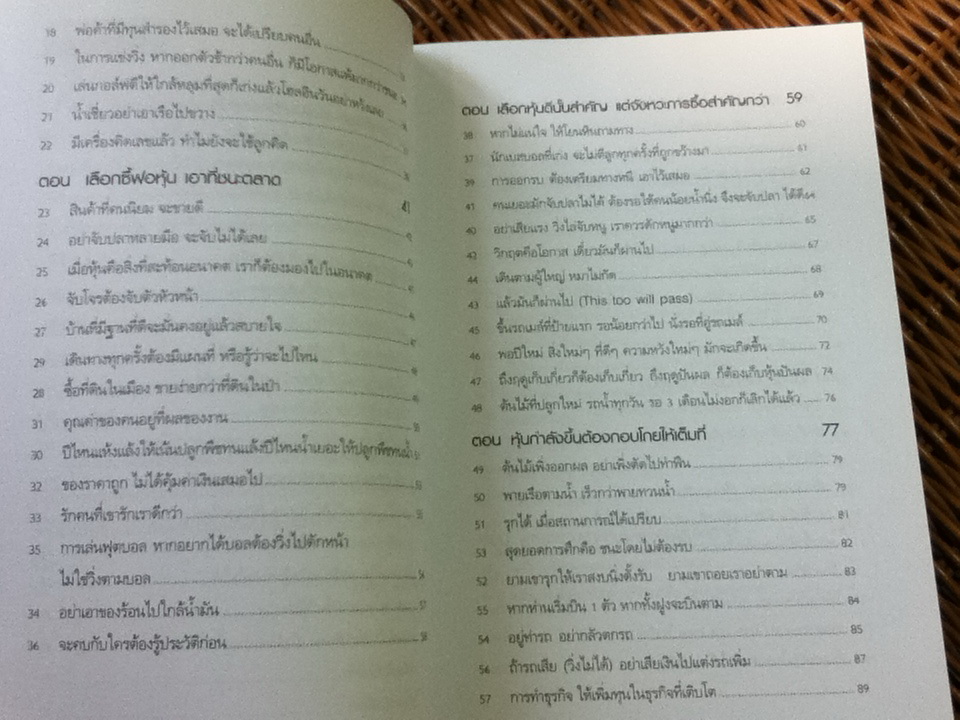 18 พ่อค้าที่มีทุนสำรองไว้เสมอ จะได้เปรียบคนอื่น
19 ในการแข่งวิ่ง หากออกตัวช้ากว่าคนอื่น ก็มีโอกาสแพ้มากกว่าชนะ
20 เล่นกอล์ฟตีให้ใกล้หลุมที่สุดก็เก่งแล้วโฮลอินวันอย่าหวังเลย
21 น้ำเชี่ยวอย่าเอาเรือไปขวาง
22 มีเครื่องคิดเลขแล้ว ทำไมยังจะใช้ลูกคิด
ตอน เลือกซื้อหุ้น เอาที่ชนะตลาด
23 สินค้าที่คนนิยม จะขายดี 41
24 อย่าจับปลาหลายมือ จะจับไม่ได้เลย
25 เมื่อหุ้นคือสิ่งที่สะท้อนอนาคต เราก็ต้องมองไปในอนาคต
26 จับโจรต้องจับตัวหัวหน้า
27 บ้านที่มีฐานที่ดีจะมั่นคงอยู่แล้วสบายใจ
29 เดินทางทุกครั้งต้องมีแผนที่ หรือรู้ว่าจะไปไหน
28 ซื้อที่ดินในเมือง ขายง่ายกว่าที่ดินในป่า
31 คุณค่าของคนอยู่ที่ผลของงาน
30 ปีไหนแห้งแล้งให้เน้นปลูกพืชทนแล้งปีไหนน้ำเยอะให้ปลูกพืชทนน้ำ
32 ของราคาถูก ไม่ได้คุ้มค่าเงินเสมอไป
33 รักคนที่เขารักเราดีกว่า
35 การเล่นฟุตบอล หากอยากได้บอลต้องวิ่งไปดักหน้า
ไม่ใช่วิ่งตามบอล
34 อย่าเอาของร้อนไปใกล้น้ำมัน 57
36 จะคบกับใครต้องรู้ประวัติก่อน 58
ตอน เลือกหุ้นดีนั้นสำคัญ แต่จังหวะการซื้อสำคัญกว่า 59
38 หากไม่แน่ใจ ให้โยนหินถามทาง 60
37 นักเบสบอลที่เก่ง จะไม่ตีลูกทุกครั้งที่ถูกขว้างมา 61
39 การออกรบ ต้องเตรียมทางหนี เอาไว้เสมอ 62
41 คนเยอะมักจับปลาไม่ได้ ต้องรอให้คนน้อยน้ำนิ่ง จึงจะจับปลา ได้ดี 64
40 อย่าเสียแรง วิ่งไล่จับหนู เราควรดักหนูมากกว่า 65
42 วิกฤตคือโอกาส เดี๋ยวมันก็ผ่านไป 67
44 เดินตามผู้ใหญ่ หมาไม่กัด 68
43 แล้วมันก็ผ่านไป (This too will pass) 69
45 ขึ้นรถเมล์ที่ป้ายแรก รอน้อยกว่าไป นั่งรอที่อู่รถเมล์ 70
46 พอปีใหม่ สิ่งใหม่ๆ ที่ดีๆ ความหวังใหม่ๆ มักจะเกิดขึ้น 72
47 ถึงฤดูเก็บเกี่ยวก็ต้องเก็บเกี่ยว ถึงฤดูปันผล ก็ต้องเก็บหุ้นปันผล 74
48 ต้นไม้ที่ปลูกใหม่ รดน้ำทุกวัน รอ 3 เดือนไม่งอกก็เลิกได้แล้ว 76
ตอน หุ้นกำลังขึ้นต้องกอบโกยให้เต็มที่ 77
49 ต้นไม้เพิ่งออกผล อย่าเพิ่งตัดไปทำฟืน 79
50 พายเรือตามน้ำ เร็วกว่าพายทวนน้ำ 79
51 รุกได้ เมื่อสถานการณ์ได้เปรียบ 81
53 สุดยอดการศึกคือ ชนะโดยไม่ต้องรบ 82
52 ยามเขารุกให้เราสงบนิ่งตั้งรับ ยามเขาถอยเราอย่าตาม 83
55 หากห่านเริ่มบิน 1 ตัว หากทั้งฝูงจะบินตาม 84
54 อยู่ท่ารถ อย่ากลัวตกรถ 85
56 ถ้ารถเสีย (วิ่งไม่ได้) อย่าเสียเงินไปแต่งรถเพิ่ม 87
57 การทำธุรกิจ ให้เพิ่มทุนในธุรกิจที่เติบโต 89